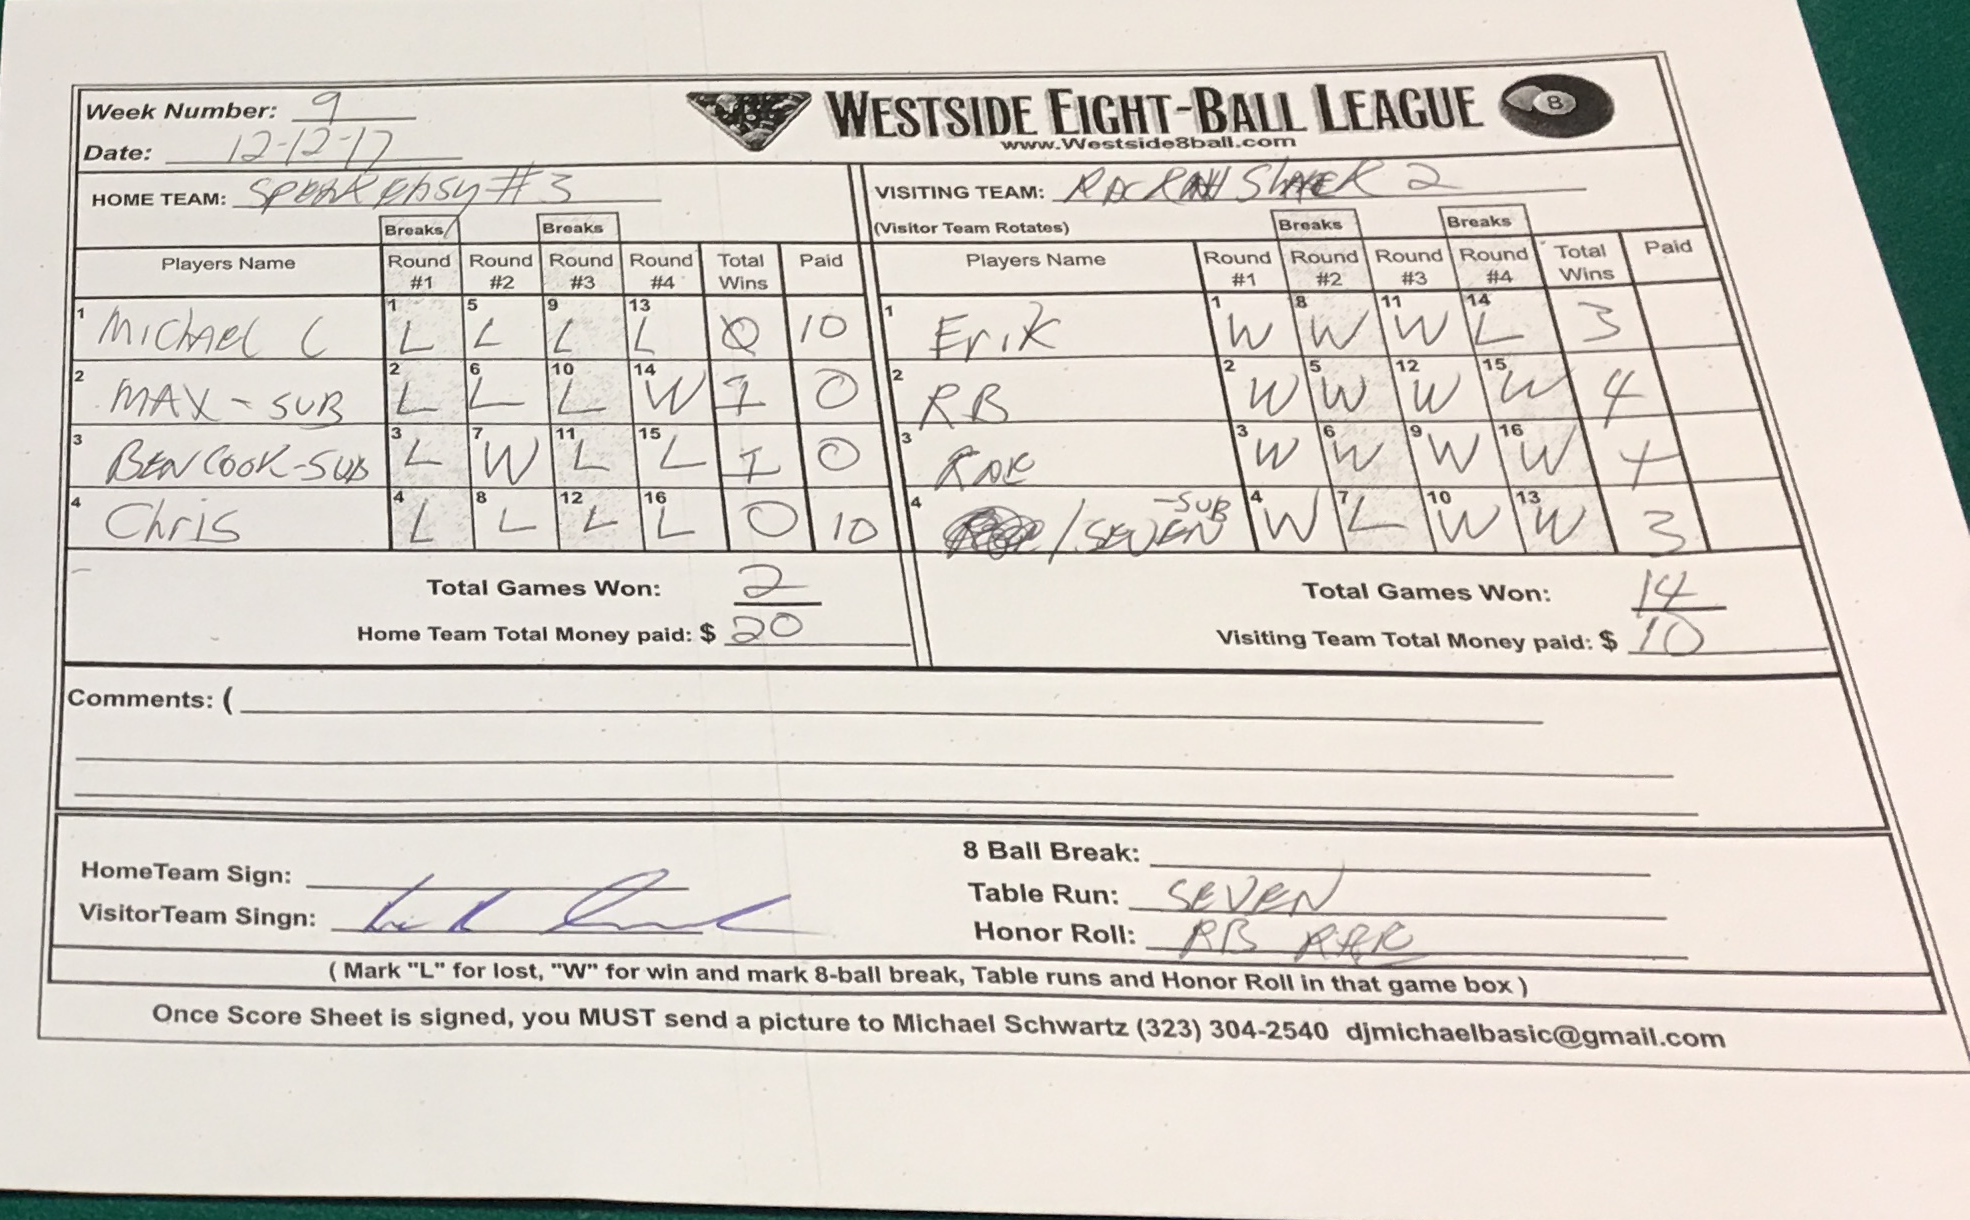 Week Number: 9
WESTSIDE EIGHT-BALL LEAGUE 8
www.Westside8ball.com
Date: 12-12-17
HOME TEAM: SPEAKEASY #3
VISITING TEAM: 2
(Visitor Team Rotates)
Breaks Breaks
Breaks Breaks
Players Name Round #1 Round #2 Round #3 Round #4 Total Wins Paid
Players Name Round #1 Round #2 Round #3 Round #4 Total Wins Paid
1 Michael C 1 L 5 L 9 L 13 L 0 10
1 Erik 1 W 8 W 11 W 14 L 3
2 MAX - SUB 2 L 6 L 10 L 14 W 1 0
2 RB 2 W 5 W 12 W 15 W 4
3 BEN COOK-SUB 3 L 7 W 11 L 15 L 1 0
3 3 W 6 W 9 W 16 W 4
4 Chris 4 L 8 L 12 L 16 L 0 10
4 / SEVEN -SUB 4 W 7 L 10 W 13 W 3
Total Games Won: 2
Total Games Won: 14
Home Team Total Money paid: $ 20
Visiting Team Total Money paid: $ 10
Comments: (
8 Ball Break:
HomeTeam Sign:
Table Run: SEVEN
VisitorTeam Singn:
Honor Roll: RB
( Mark "L" for lost, "W" for win and mark 8-ball break, Table runs and Honor Roll in that game box )
Once Score Sheet is signed, you MUST send a picture to Michael Schwartz (323) 304-2540 djmichaelbasic@gmail.com